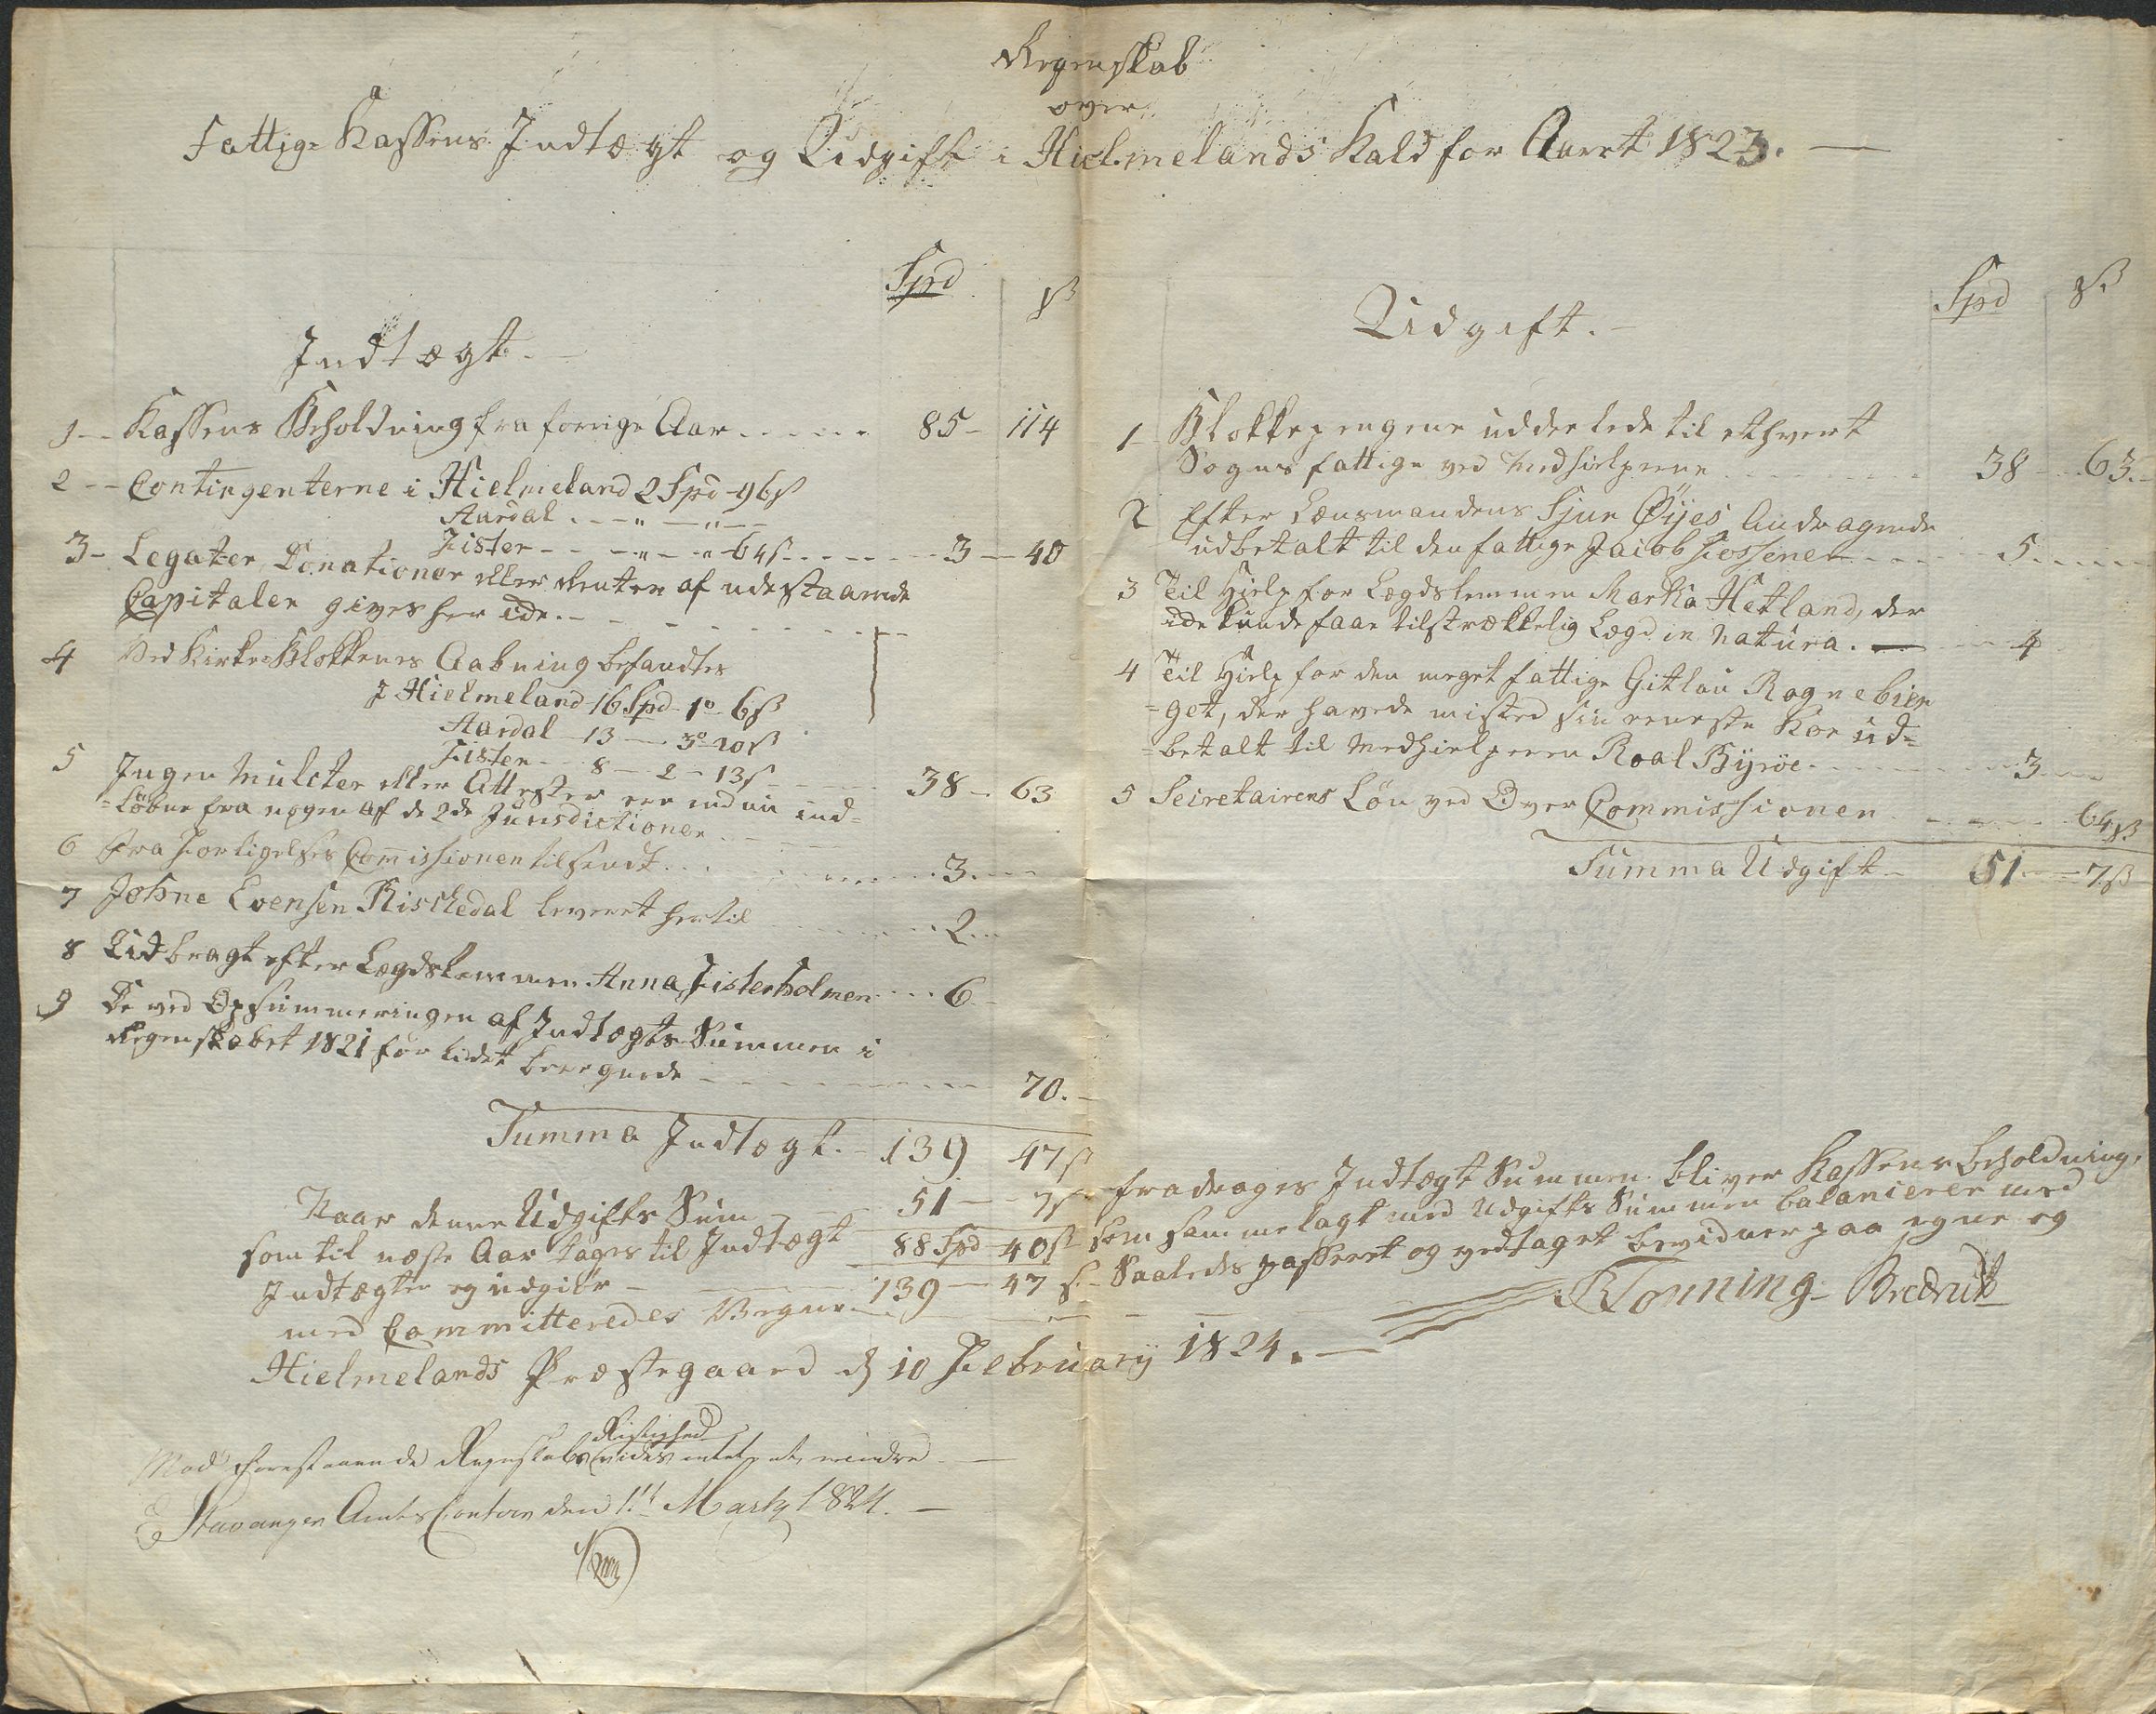 Regenskab
over
Fattig- Kassens Indtægt og Udgift i Hielmelands Kald for Aaret 1823. —
Spd ß
Indtægt. -
1 - Kassens Beholdning fra forrige Aar - - - - - 85 - 114
2 - - Contingenterne i Hielmeland 2 Spd - 96 ß
Aardal - - - " - - " - -
Fister - - - " - - " - 64 ß - - - - - 3 - 40
3 - Legater, Donationer eller Renter af udestaaende
Capitaler gives her icke. - - - - - -
4 Ved Kirke-Blokkenes Aabning befandtes
I Hielmeland 16 Spd - 1° 6 ß
Aardal - 13 - - 3° 20 ß
Fister - - 8 - - 2 - 13 ß - - - - 38 - 63
5 Ingen Mulcter eller Attester ere endnu ind-
=løbne fra nogen af de 2de Jurisdictioner - -
6 Fra Forligelses Commissionen tilsendt - - - - - 3. - -
7 Johne Evensen Risckedal leveret hertil - - - - - 2. - -
8 Udbragt efter Lægdslemmen Anna Fisterholmen - - - 6 -
9 De ved Opsummeringen af Indtægts Summen i
Regenskabet 1821 for lidet beregnede - - - - - - 70. -
Summa Indtægt. - 139 47 ß
Naar denne Udgifts Sum - - 51 - - 7 ß
som til næste Aar tages til Indtægt 88 Spd - 40 ß
Indtægten og udgiør - - - - 139 - - 47 ß -
med Committeredes Vegne - - -
Hielmelands Præstegaard d 10 Februarij 1824. —
Spd ß
Udgift. -
1 - Blokkepengene uddeelede til ethvert
Sogns fattige ved Medhielperne - - - - - 38 - - 63. -
2 Efter Lensmandens Sjur Øijes Andragende
udbetalt til den fattige Jacob Fossene - - - - - 5. - - -
3 Til Hielp for Lægdslemmen Martha Hetland, der
icke kunde faae tilstrækkelig Lægd in natura. - - - 4
4 Til Hielp for den meget fattige Gitlau Rognebier
=get, der havde mistet sin eeneste Koe ud-
=betalt til Medhielperen Roal Byrøe - - - - - 3 - -
5 Secretairens Løn ved Over Commissionen - - - - 64 ß
Summa Udgift - 51 - - 7 ß
fradrages Indtægt Summen bliver Kassens beholdning,
som sammenlagt med Udgifts Summen balancerer med
Saaledes passeret og vedtaget bevidner paa egne og
Tonning Bredrup
Mod forestaaende Regnskabs Rigtighed vides intet at erindre —
Stavanger Amts Contoir den 1ste Marty 1824. —